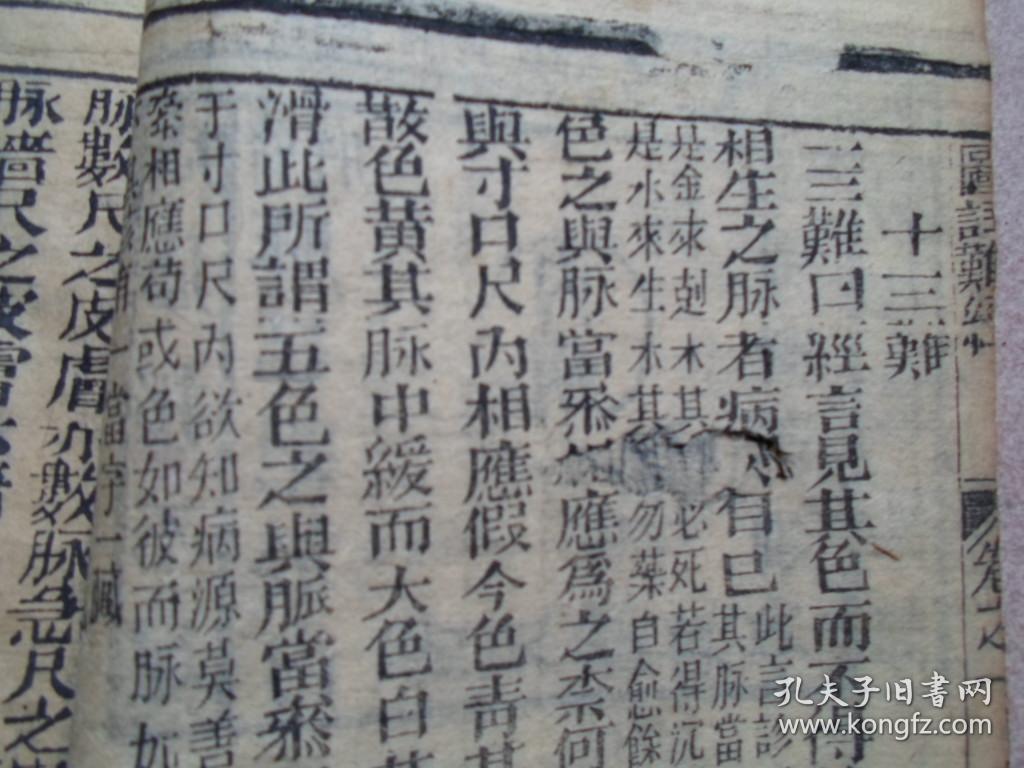 十三難
十三難曰經言見其色而不得
相生之脉者病自已
此言診
其脉當
是金來剋木其必死若得沉
是水來生木其勿藥自愈餘
色之與脉當參相應爲之柰何
與寸口尺內相應假令色青其
散色黃其脉中緩而大色白其
滑此所謂五色之與脈當參
于寸口尺內欲知病源莫善
相應苟或色如彼而脉如
一當字一臟
脉數尺之皮膚亦數脉急尺之
脉濇尺之皮膚
孔夫子旧书网
www.kongfz.com